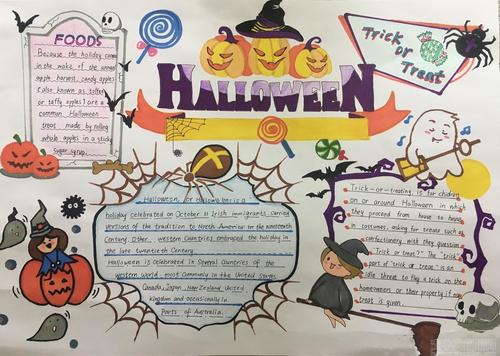 FOODS
Because the holiday comes
in the wake of the annual
apple harvest, candy apples
(also known as toffee
or taffy apples) are a
common Halloween
treat made by rolling
whole apples in a sticky
sugar syrup.
HALLOWEEN
Trick
or
Treat
Halloween, or Hallowe'en is a
holiday celebrated on October 11 Irish immigrants carried
versions of the tradition to North America in the nineteenth
Century. Other western Countries embraced the holiday in
the late twentieth Century
Halloween is celebrated in Several Countries of the
western world, most commonly in the United States
Canada, Japan, New Zealand, United
kingdom and occasionally in
Parts of Australia.
Trick-or-treating, is for children
on or around Halloween in which
they proceed from house to house
in costumes, asking for treats such as
confectionery with they question
"Trick or treat?" The "trick"
part of "trick or treat" is an
idle threat to play a trick on the
homeowners or their property if no
treat is given.